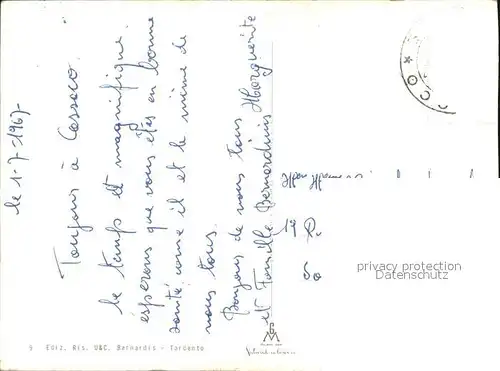 le 1-7-1967
Toujours à Cassaco.
le temps est magnifique.
éspérons que vous étés en bonne
santé come il et le même de
nous tous.
Bonjons de nous tous Marguerite
et Famille Bernardinis
Mon
17 R.
So
privacy protection
ansichtskartenhandel.de
9 Ediz. Ris. V&C. Bernardis - Tarcento